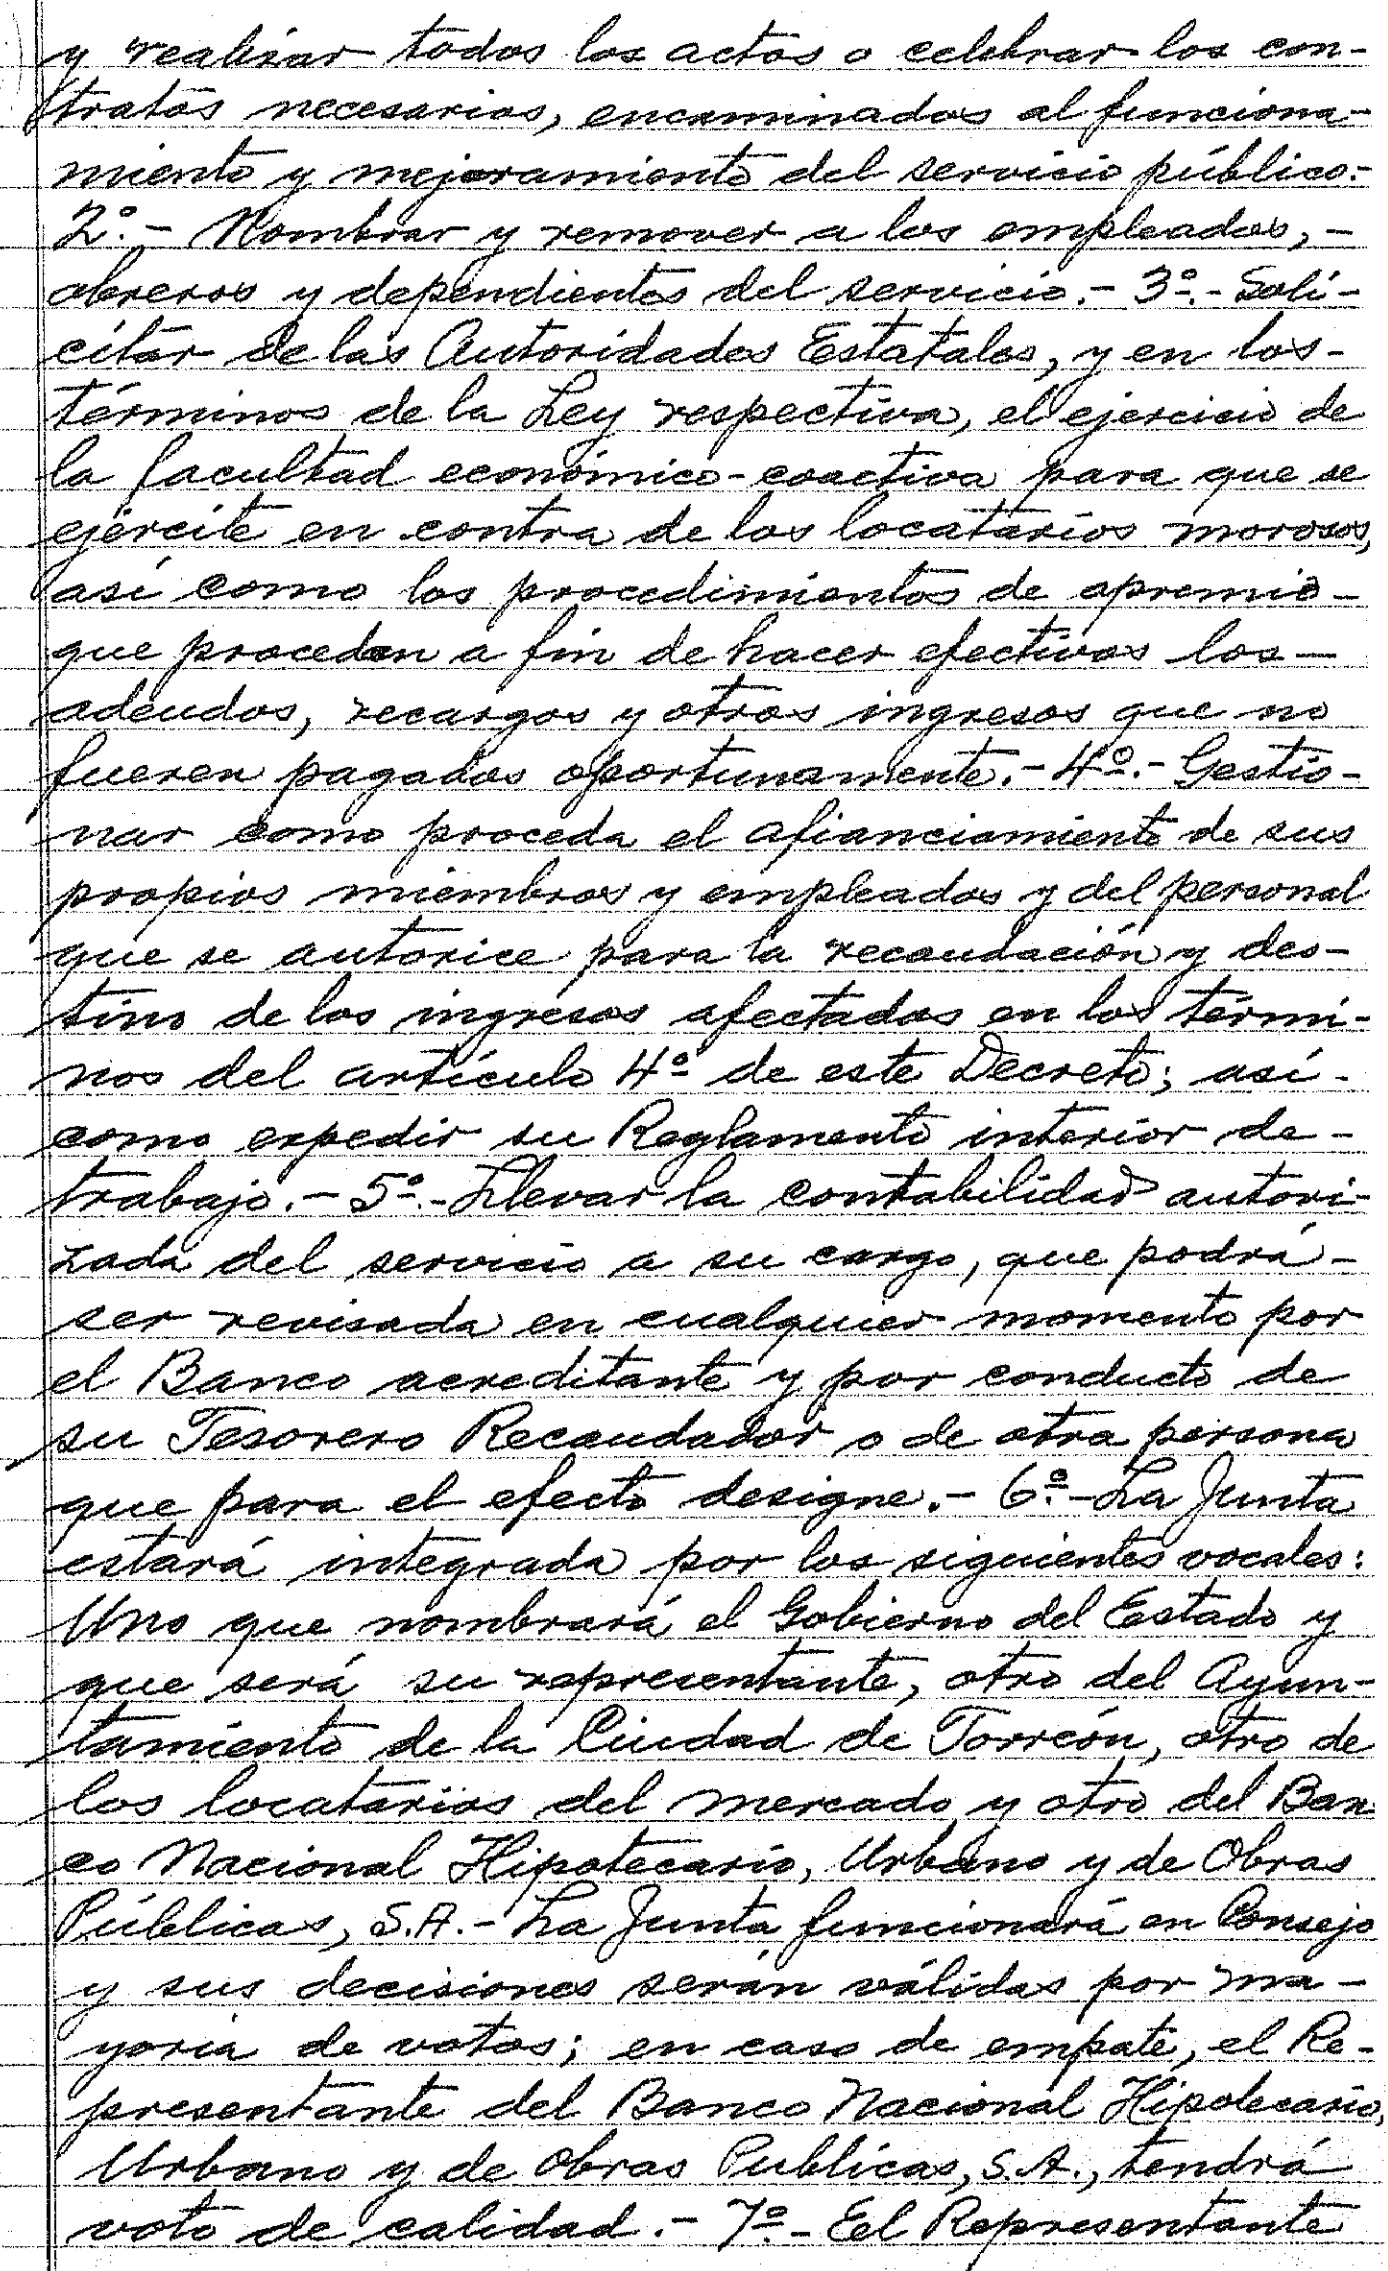 y realizar todos los actos o celebrar los con-
tratos necesarios, encaminados al funciona-
miento y mejoramiento del servicio público.-
2º.- Nombrar y remover a los empleados, -
obreros y dependientes del servicio.- 3º.- Soli-
citar de las Autoridades Estatales, y en los -
términos de la Ley respectiva, el ejercicio de
la facultad económico-coactiva para que se
ejercite en contra de los locatarios morosos,
así como los procedimientos de apremio -
que procedan a fin de hacer efectivos los -
adeudos, recargos y otros ingresos que no
fueren pagados oportunamente.- 4º.- Gestio-
nar como proceda el afianciamiento de sus
propios miembros y empleados y del personal
que se autorice para la recaudación y des-
tino de los ingresos afectados en los térmi-
nos del artículo 4º de este Decreto; así -
como expedir su Reglamento interior de -
trabajo.- 5º.- Llevar la contabilidad autori-
zada del servicio a su cargo, que podrá -
ser revisada en cualquier momento por
el Banco acreditante y por conducto de
su Tesorero Recaudador o de otra persona
que para el efecto designe.- 6º.- La Junta
estará integrada por los siguientes vocales:
Uno que nombrará el Gobierno del Estado y
que será su representante, otro del Ayun-
tamiento de la Ciudad de Torreón, otro de
los locatarios del mercado y otro del Ban-
co Nacional Hipotecario, Urbano y de Obras
Públicas, S.A.- La Junta funcionará en Consejo
y sus decisiones serán válidas por ma-
yoria de votos; en caso de empate, el Re-
presentante del Banco Nacional Hipotecario,
Urbano y de Obras Publicas, S.A., tendrá
voto de calidad.- 7º- Eel Representante